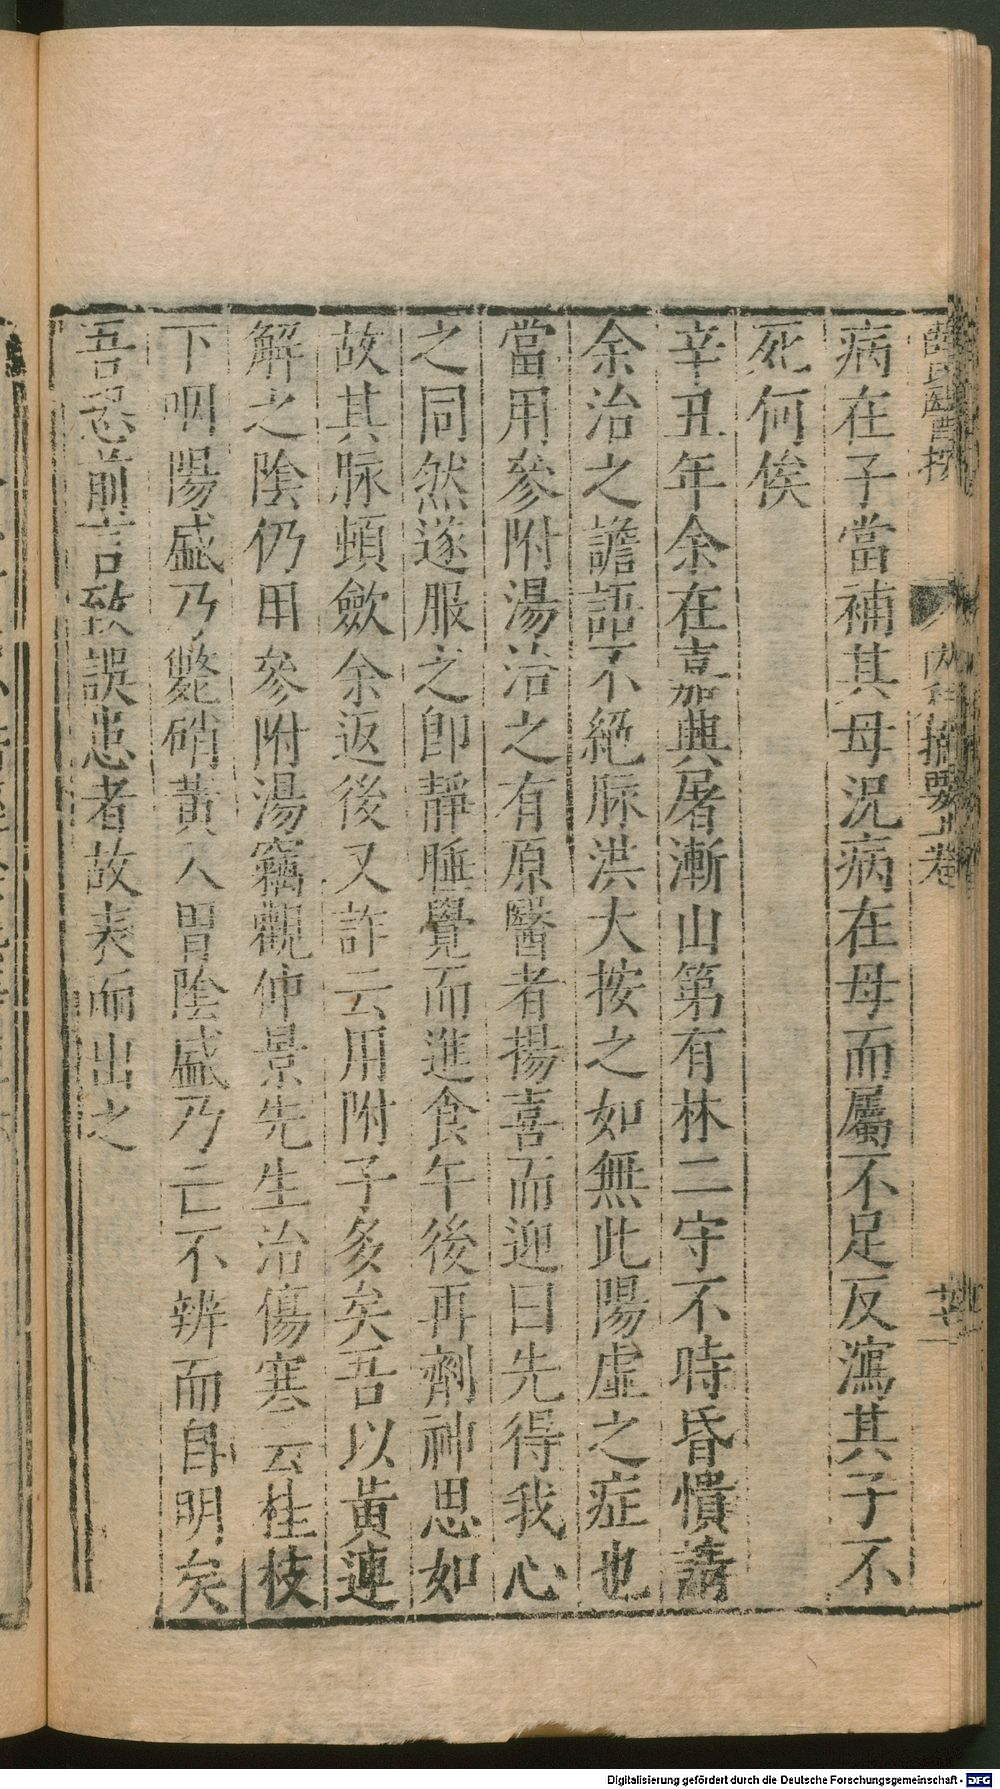 薛氏醫按 內科摘要上卷
病在子當補其母況病在母而屬不足反瀉其子不
死何俟
辛丑年余在嘉興屠漸山第有林二守不時昏憒請
余治之譫語不絕脈洪大按之如無此陽虛之症也
當用參附湯治之有原醫者揚喜而迎曰先得我心
之同然遂服之卽靜睡覺而進食午後再劑神思如
故其脈頓歛余返後又詐云用附子多矣吾以黃連
解之陰仍用參附湯竊觀仲景先生治傷寒云桂枝
下咽陽盛乃斃硝黃入胃陰盛乃亡不辨而自明矣
吾恐前言致誤患者故表而出之
Digitalisierung gefördert durch die Deutsche Forschungsgemeinschaft - DFG